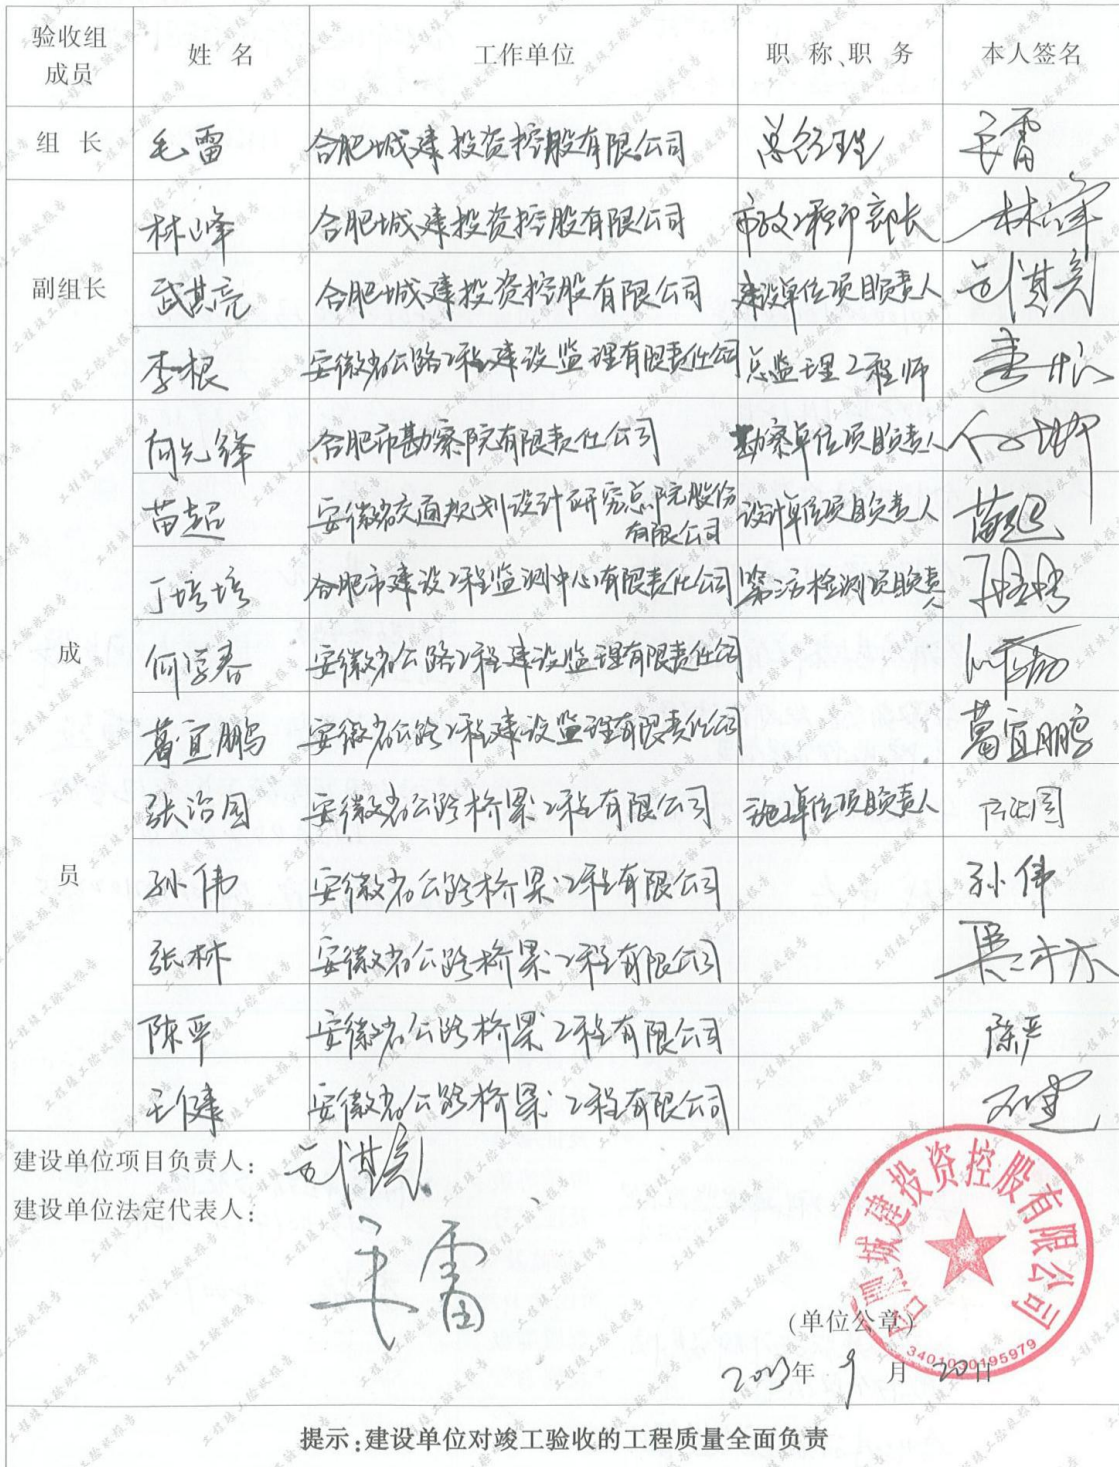 验收组成员 姓 名 工作单位 职 称、职 务 本人签名
组 长 毛雷 合肥城建投资控股有限公司 总经理 毛雷
副组长
林峰 合肥城建投资控股有限公司 市政工程部部长 林峰
武其亮 合肥城建投资控股有限公司 建设单位项目负责人 武其亮
李根 安徽省公路工程建设监理有限责任公司 总监理工程师 李根
成员
何先锋 合肥市勘察院有限责任公司 勘察单位项目负责人
苗超 安徽省交通规划设计研究总院股份有限公司 设计单位项目负责人 苗超
丁培培 合肥市建设工程监测中心有限责任公司 第三方检测项目负责人 丁培培
何学春 安徽省公路工程建设监理有限责任公司
葛宜鹏 安徽省公路工程建设监理有限责任公司 葛宜鹏
张治国 安徽省公路桥梁工程有限公司 施工单位项目负责人 张治国
孙伟 安徽省公路桥梁工程有限公司 孙伟
张林 安徽省公路桥梁工程有限公司
陈平 安徽省公路桥梁工程有限公司 陈平
王健 安徽省公路桥梁工程有限公司 王健
建设单位项目负责人: 武其亮
建设单位法定代表人:
毛雷
合肥城建投资控股有限公司
3401030195979
(单位公章)
2023年 9 月 20日
提示:建设单位对竣工验收的工程质量全面负责
工程竣工验收报告